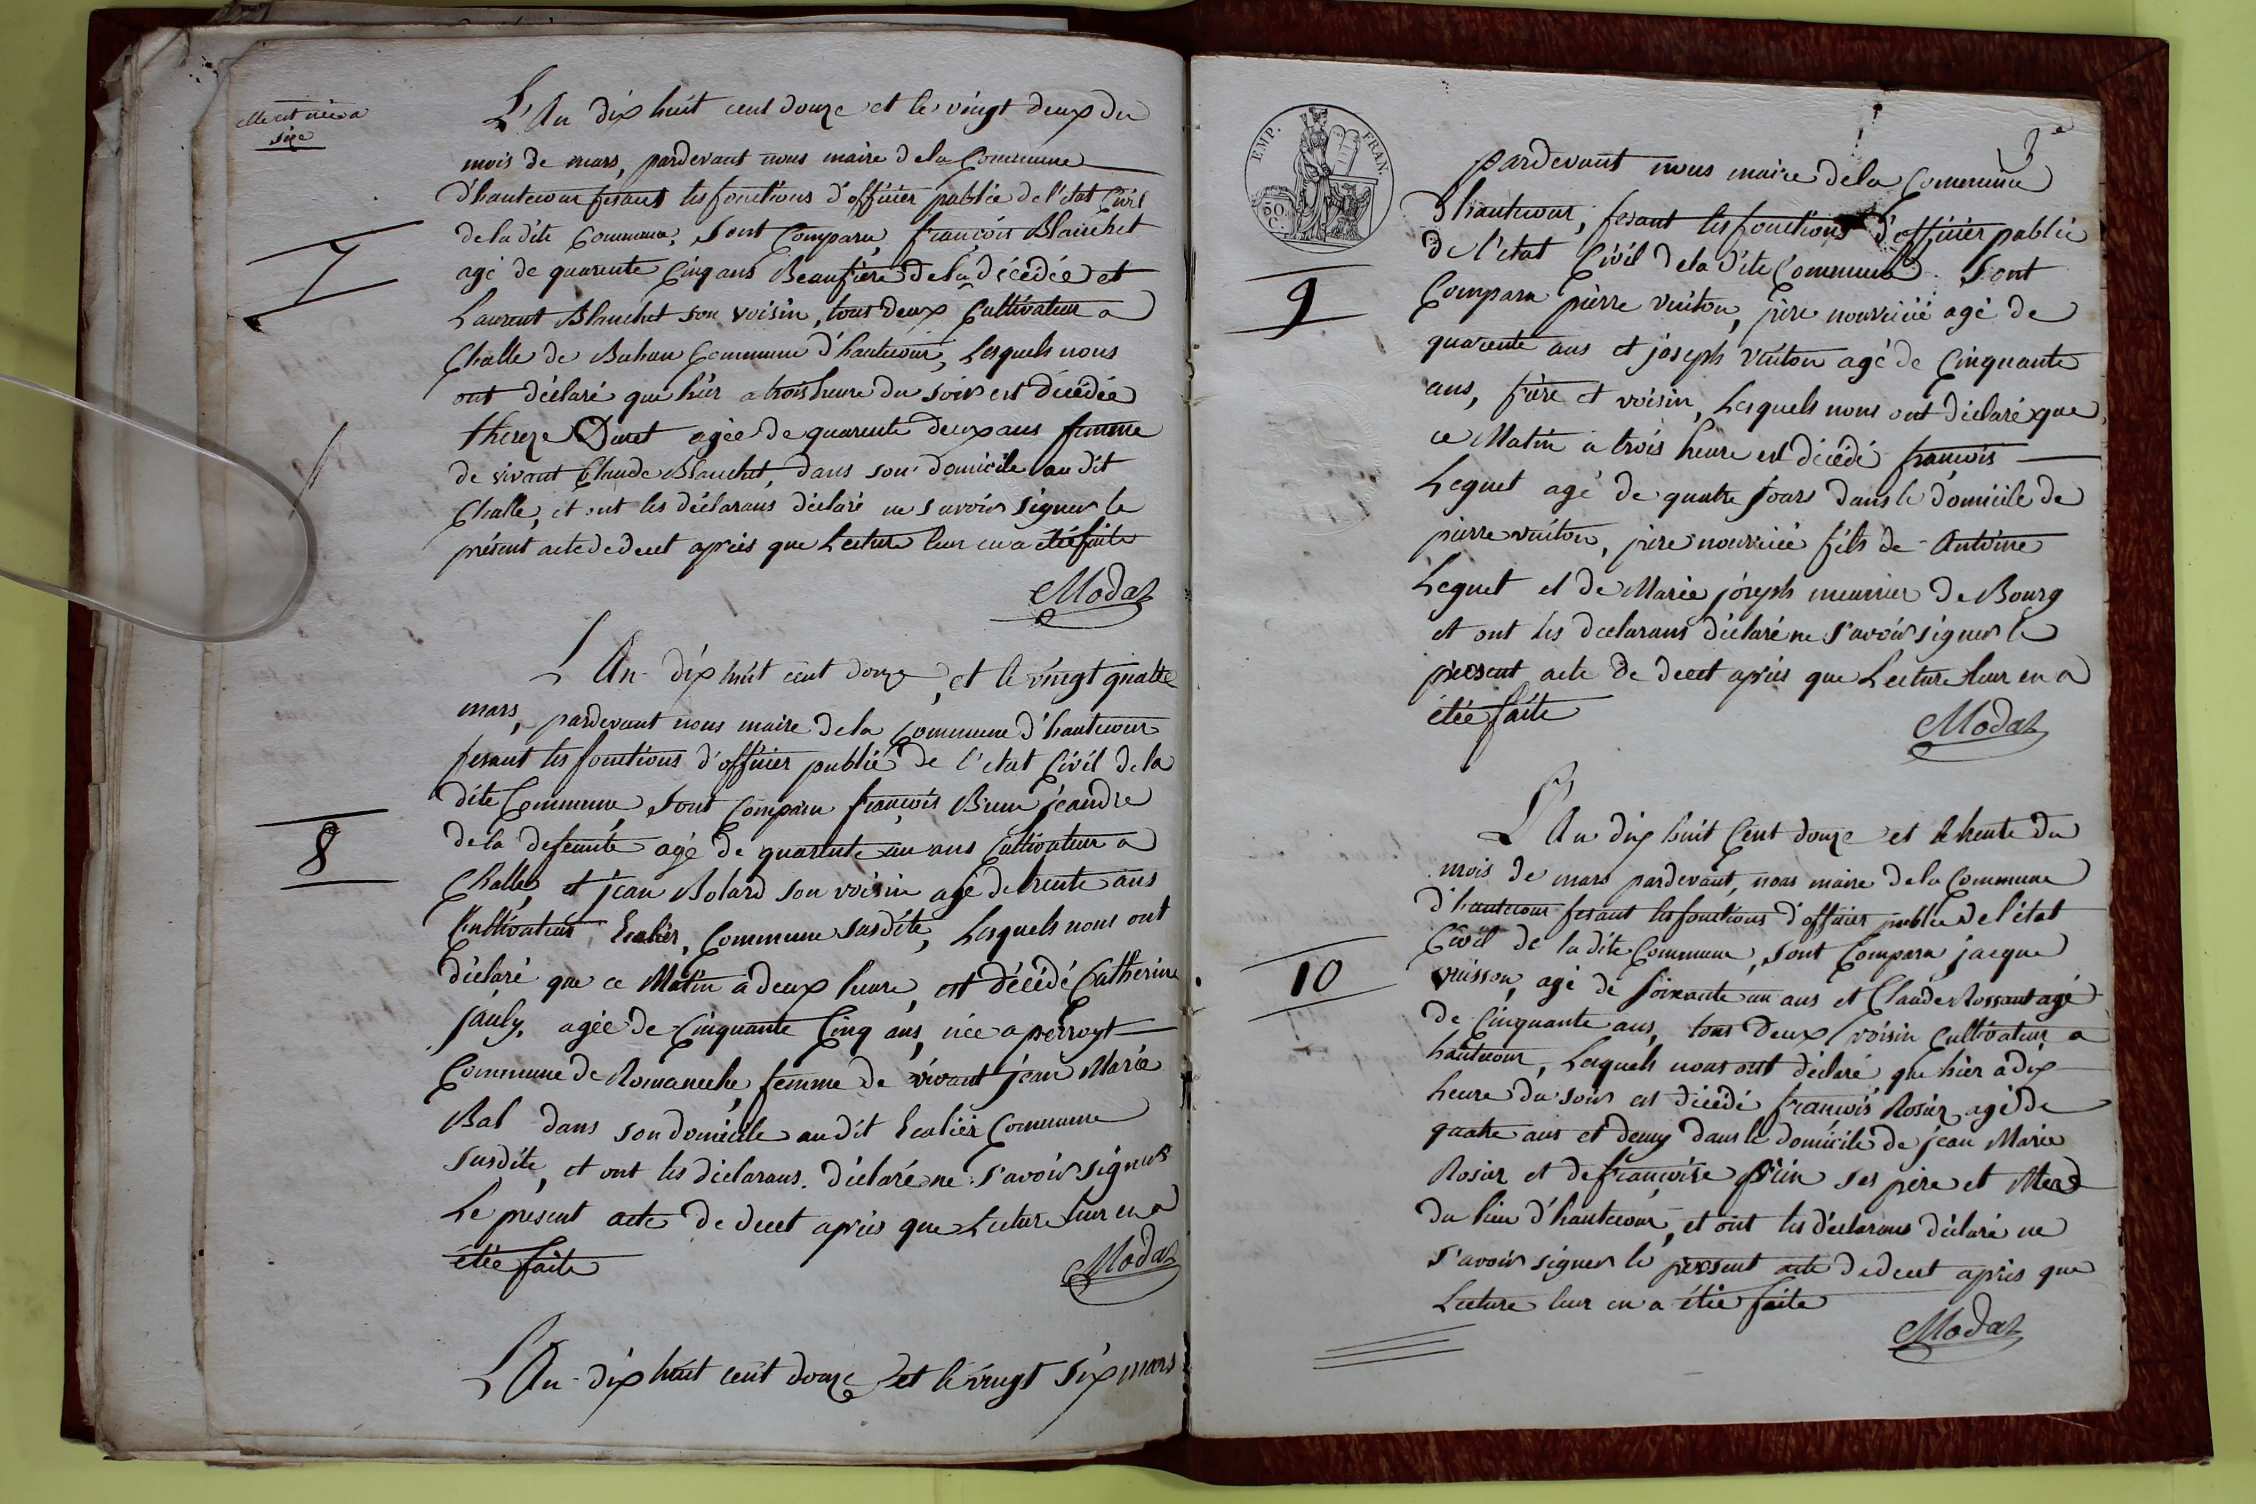 elle est née a
size
L'An dix huit cent douze et le vingt deux du
mois de mars, pardevant nous maire dela Commune
d'hautecour fesant les fonctions d'officier publie de l'état Civil
dela dite Commune, Sont Comparu françois Blanchet
agé de quarente Cinq ans Beaufrere dela décédée et
Laurent Blanchet son voisin, tous deux Cultivateur a
Challe de Bohan Commune d'hautecour, Lesquels nous
ont déclaré que hier a trois heure du soir est décédée
therese Duret agée de quarente deux ans femme
de vivant Claude Blanchet, dans son domicile au dit
Challe, et ont les déclarans déclaré ne savoir signer le
présent acte de decet après que Lecture leur en a étée faite
Modas
7
L'An dix huit cent douze, et le vingt quatre
mars, pardevant nous maire dela Commune d'hautecour
fesant les fonctions d'officier publié de l'etat Civil dela
dite Commune, Sont Comparu françois Brun jeandre
dela defeunte agé de quarente un ans Cultivateur a
Challe, et jean Bolard son voisin agé de trente ans
Cultivateur Lealier, Commune susdite, Lesquels nous ont
déclaré que ce Matin a deux heure, est décédé Catherine
agée de Cinquante Cinq ans, née a perroyt
Commune de Romaneche, femme de vivant jean Marie
Bal dans son domicile au dit Lealier Commune
susdite, et ont les déclarans déclaré ne s'avoir signer
Le present acte de decet après que Lecture leur en a
étée faite
Modas
8
L'An dix huit cent douze et le vingt six mars
EMP. FRAN.
50 C.
3e
pardevant nous maire dela Commune
d'hautecour, fesant les fonctions d'officier publie
de l'etat Civil dela dite Commune. Sont
Comparu pierre vuiton, père nourricié agé de
quarente ans et joseph vuiton agé de Cinquante
ans, frère et voisin, Lesquels nous ont déclaré que
ce Matin a trois heure est décédé françois
Lequet agé de quatre jours dans le domicile de
pierre vuiton, père nourricié fils de Antoine
Lequet et de Marie joseph meunier de Bourg
et ont les declarans déclaré ne s'avoir signer le
present acte de decet après que Lecture leur en a
étée faite
Modas
9
L'An dix huit Cent douze et le trente du
mois de mars pardevant, nous maire dela Commune
d'hautecour fesant les fonctions d'officier publie de l'état
Civil de la dite Commune, Sont Comparu jacque
vuisson, agé de soixante un ans et Claude Rossant agé
de Cinquante ans, tous deux voisin Cultivateur a
hautecour, Lesquels nous ont déclaré que hier a dix
heure du soir est décédé françois Rosier agé de
quatre ans et demy dans le domicile de jean Marie
Rosier et de françoise ses père et Mere
du lieu d'hautecour, et ont les déclarans déclaré ne
s'avoir signer le present acte de decet après que
Lecture leur en a étée faite
Modas
10